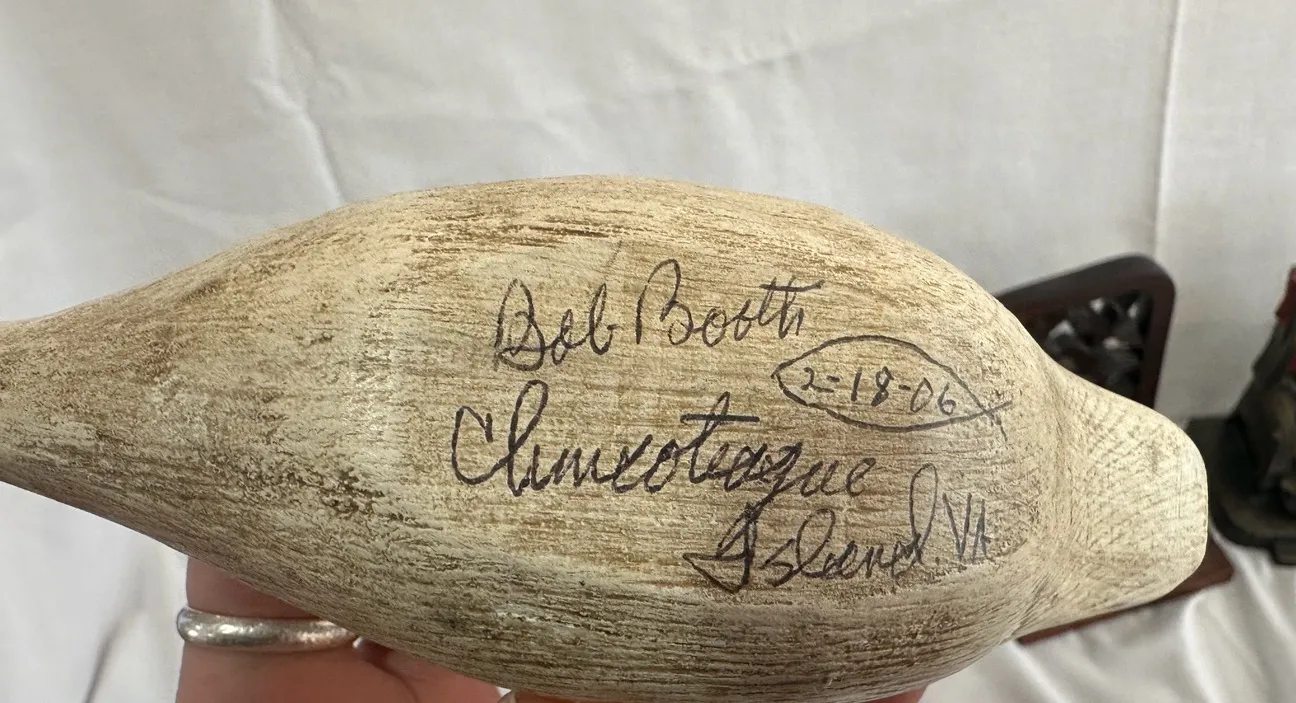 Bob Booth
2-18-06
Chincoteague
Island, VA